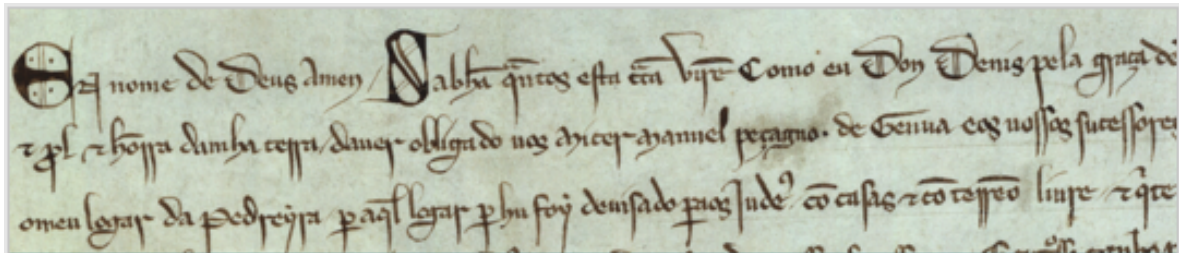 En nome de Deus Amen, Sabhã quãtos esta cta virẽ Como eu Don Denis pela graça de
⁊ prol ⁊ hõrra damha terra, daver obligado vos Micer Manuel peçagno. de Genua eos vossos sucessores
omeu logar da Pedreyra, per aql logar per hu foy devisado peraos Judeꝰ, cõ casas ⁊ cõ terreo livre, ⁊ qite